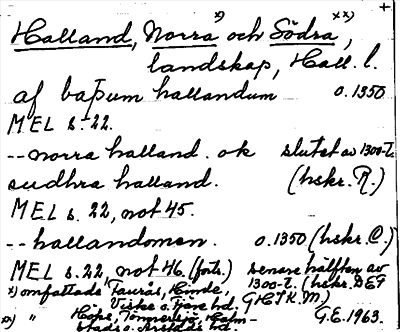 +
Halland, Norra x) och Södra xx),
landskap, Hall. l.
af baþum hallandum o. 1350
MEL s. 22.
-- norra halland. ok slutet av 1300-t.
sudhra halland. (hskr. R.)
MEL s. 22, not 45.
-- hallandomen. o. 1350 (hskr. C.)
MEL s. 22, not 46. (forts.) senare hälften av
x) omfattade Faurås, Himle, 1300-t. (hskr. DEF
Viske o. Fjäre hd. GHIK.M)
xx) " Höks, Tönnersjö, Halm-
stads o. Årstads hd. G.E. 1963.